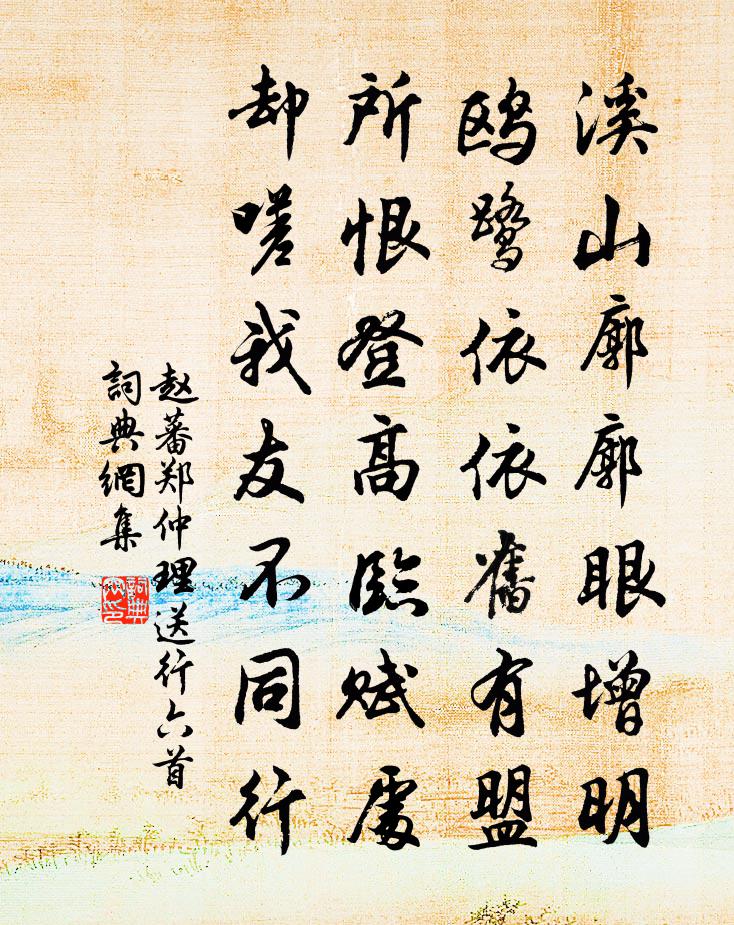 溪山廓廓眼增明
鸥鹭依依舊有盟
所恨登高臨赋處
却嗟我友不同行
赵蕃郑仲理送行六首
詞典網集